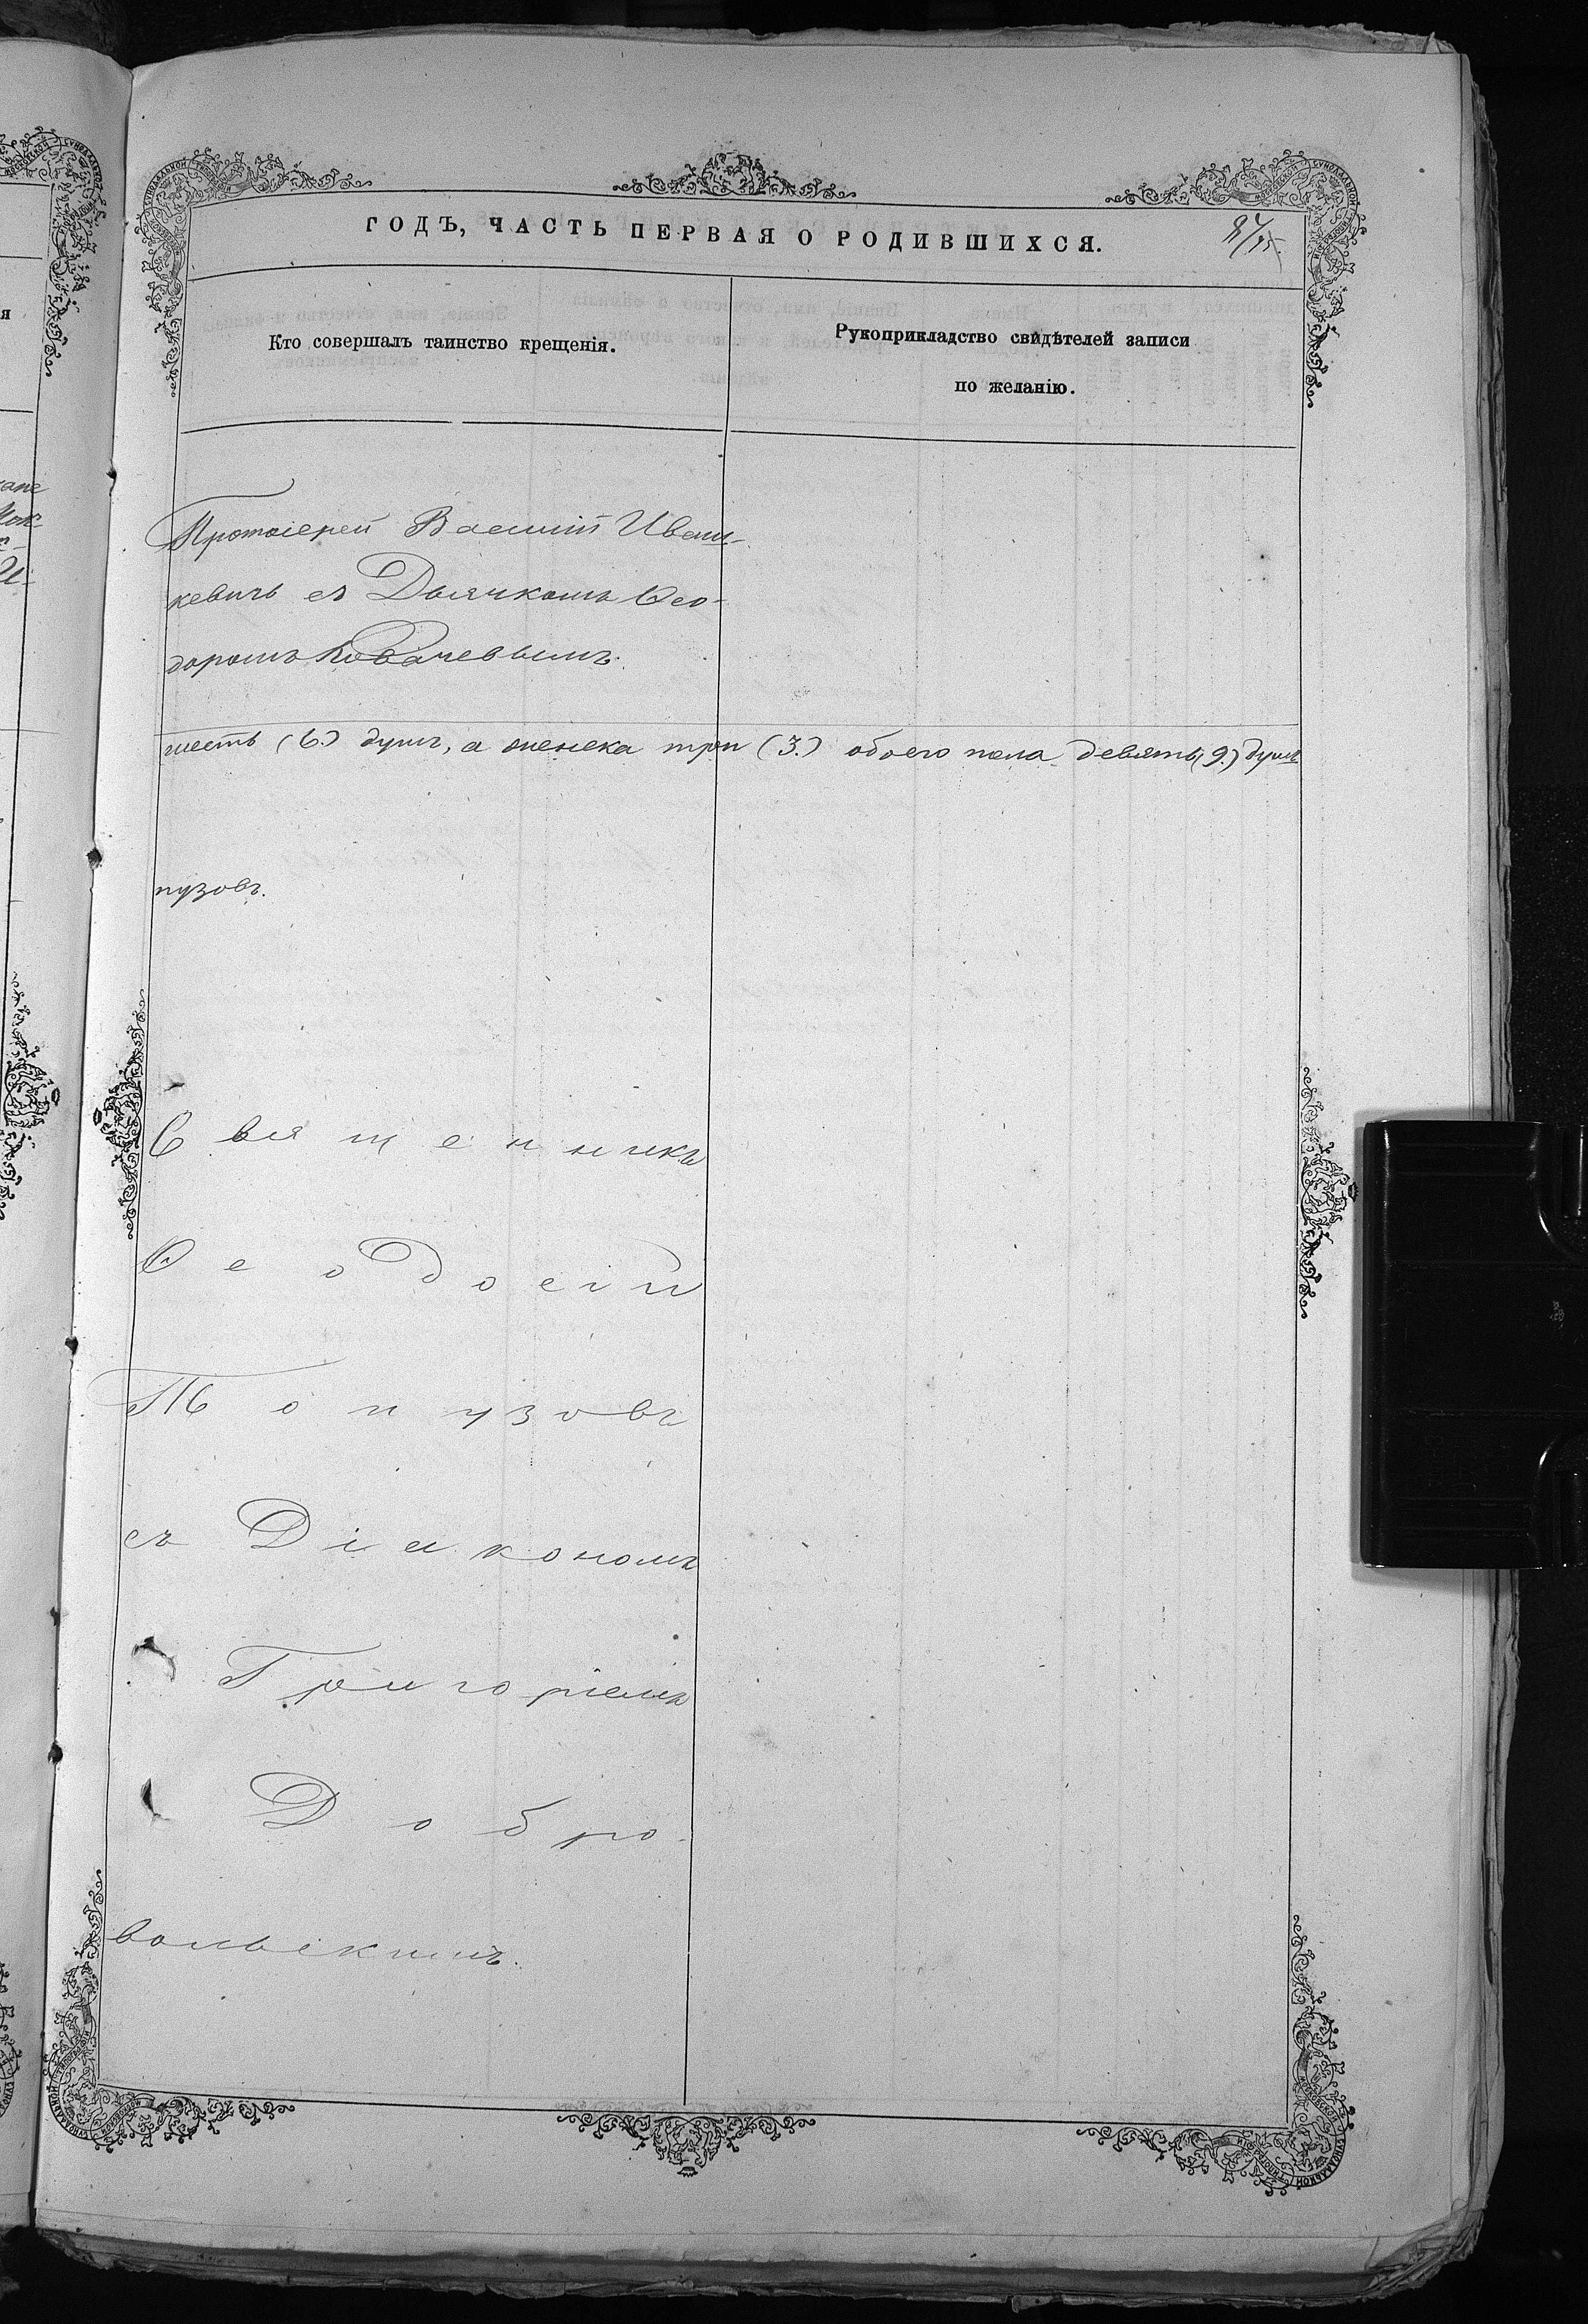 ГОДЪ, ЧАСТЬ ПЕРВАЯ О РОДИВШИХСЯ.
Кто совершалъ таинство крещенія.
Рукоприкладство свидѣтелей записи
по желанію.
Протоіерей Василій Ивани-
кевичъ съ Дьячкомъ Ѳео-
доромъ Ковачевымъ.
шесть (6.) душъ, а женска три (3.) обоего пола девять (9.) душъ
пузовъ.
Священникъ
Ѳеодосій
Топузовъ
съ Діакономъ
Григоріемъ
Добро-
вольскимъ.